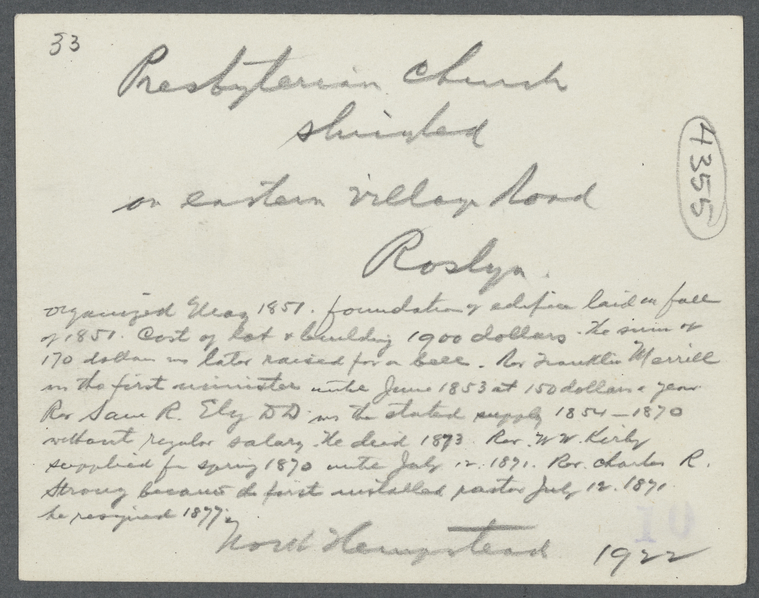 33
Presbyterian Church
shingled
4355
on eastern village Road
Roslyn.
organized May 1851. foundation of edifice laid in fall
of 1851. Cost of lot & building 1900 dollars. The sum of
170 dollars was later raised for a bell. Rev Franklin Merrill
was the first minister until June 1853 at 150 dollars a year
Rev Sam R. Ely DD. was the stated supply 1854-1870
without regular salary. He died 1873. Rev. W.W. Kirby
supplied for spring 1870 until July 12. 1871. Rev. Charles R.
Strong became the first installed pastor July 12. 1871
he resigned 1877.
North Hempstead 1922
10